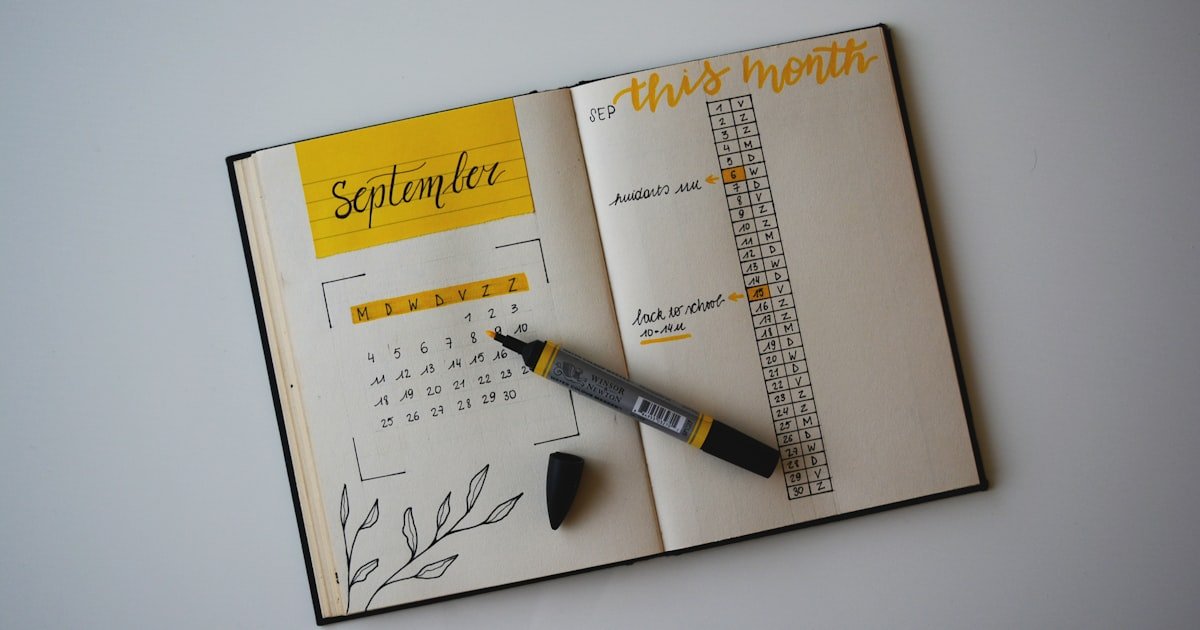 September
M D W D V Z Z
1 2 3
4 5 6 7 8 9 10
11 12 13 14 15 16
18 19 20 21 22 23
25 26 27 28 29 30
WINSOR
NEWTON
this month
SEP
1 V
2 Z
3 Z
4 M
5 D
huidarts
6 W
7 D
8 V
9 Z
10 Z
11 M
12 D
13 W
14 D
back to school
10-14u
15 V
16 Z
17 Z
18 M
19 D
20 W
21 D
22 V
23 Z
24 Z
25 M
26 D
27 W
28 D
29 V
30 Z